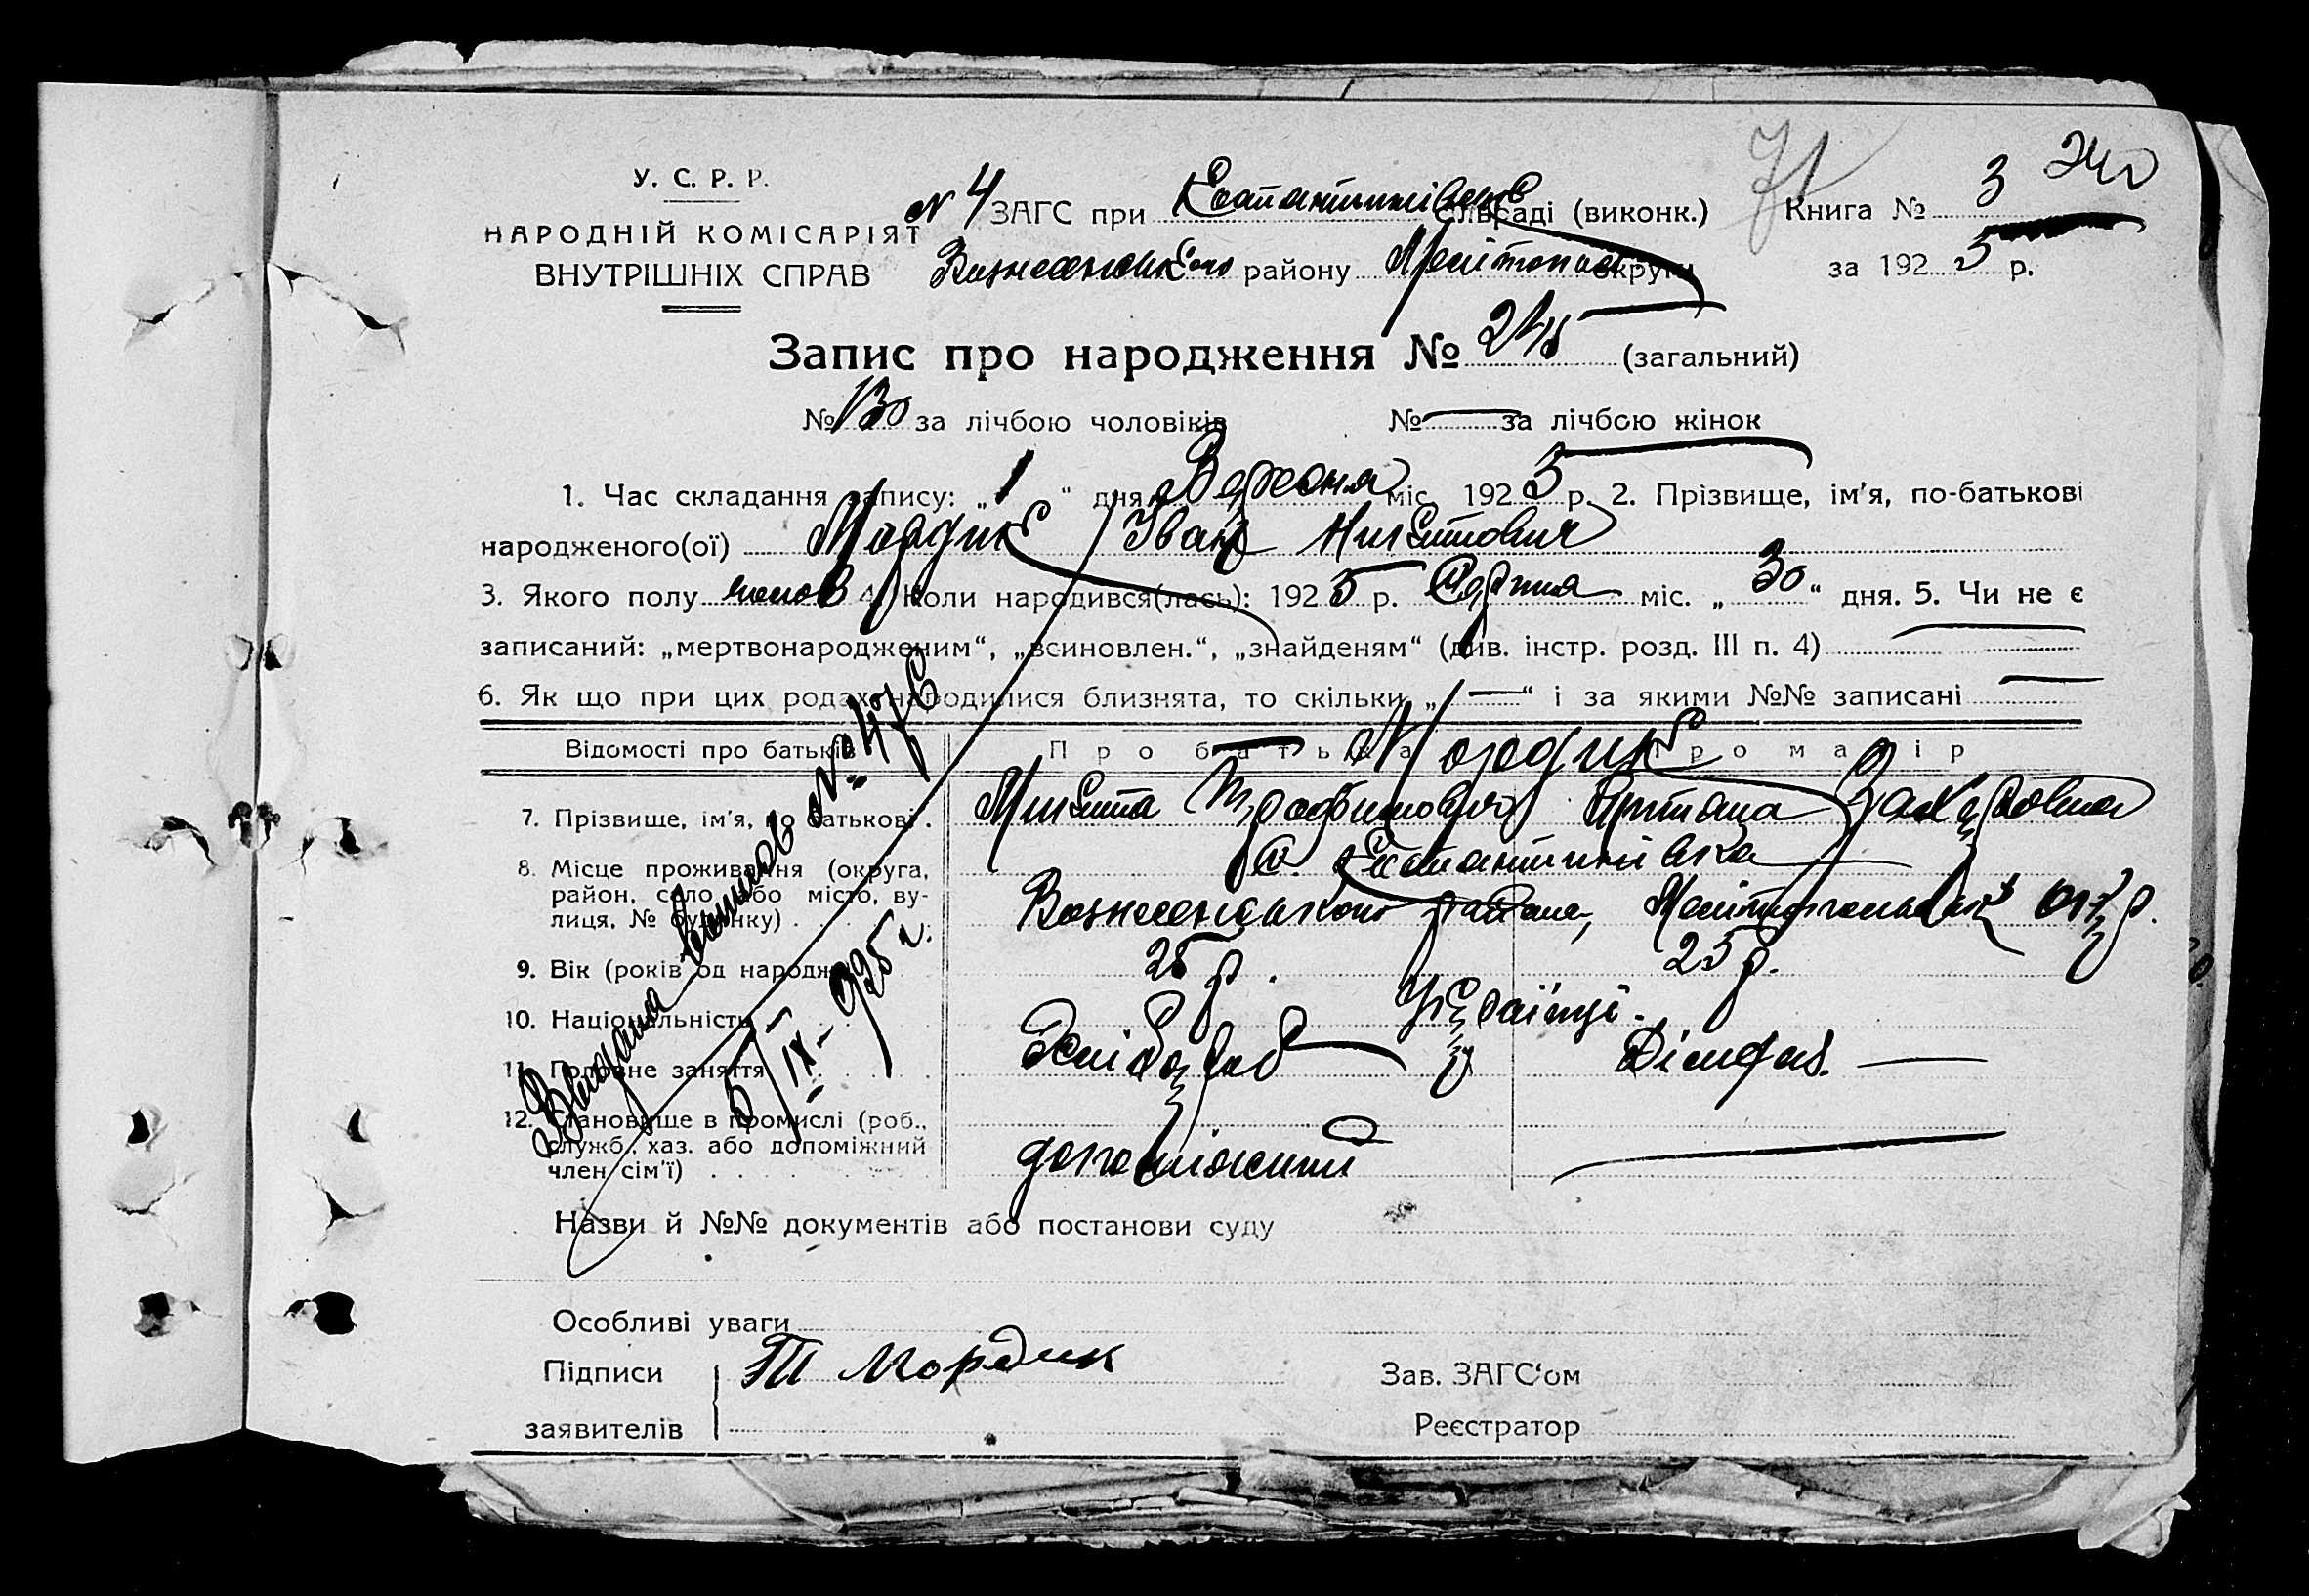 71
240
У. С. Р. Р.
№ 4 ЗАГС при Костантинівск сільраді (виконк.) Книга № 3
НАРОДНІЙ КОМІСАРІЯТ
ВНУТРІШНІХ СПРАВ
Вознесенського району Мелітопол округи за 1925 р.
Запис про народження № 245 (загальний)
№ 130 за лічбою чоловіків № — за лічбою жінок
1. Час складання запису: „1“ дня Вересня міс. 1925 р. 2. Прізвище, ім'я, по-батькові
народженого(ої) Мордик Іван Микитович
3. Якого полу чолов 4. Коли народився(лась): 1925 р. Серпня міс. „30“ дня. 5. Чи не є
записаний: „мертвонародженим“, „всиновлен.“, „знайденям“ (див. інстр. розд. III п. 4) —
6. Як що при цих родах народилися близнята, то скільки „—“ і за якими №№ записані —
Відомості про батьків Про батька Про матір
Мордик
7. Прізвище, ім'я, по батькові . Микита Трофимович Захаровна
8. Місце проживання (округа, с. Костантинівка
район, село або місто, ву-
лиця, № будинку) . Вознесенського района, Мелітопольськ окр.
9. Вік (років од народж 25 р. 25 р.
10. Національність Українці.
11. Головне заняття Хлібороб
12. Становище в промислі (роб.,
служб., хаз. або допоміжний допоміжний —
член сім'ї)
Видана №
5/IX-925 г.
Назви й №№ документів або постанови суду
Особливі уваги
Підписи Т Мордик Зав. ЗАГС'ом
заявителів Реєстратор